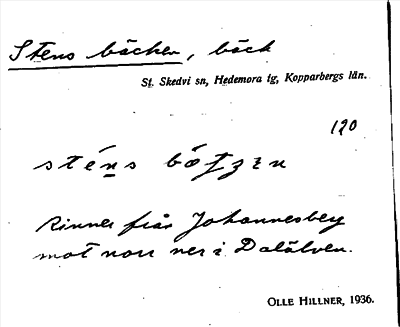 Stens bäcken, bäck
St. Skedvi sn, Hedemora tg, Kopparbergs län.
120
Rinner från Johannesberg
mot norr ner i Dalälven.
OLLE HILLNER, 1936.